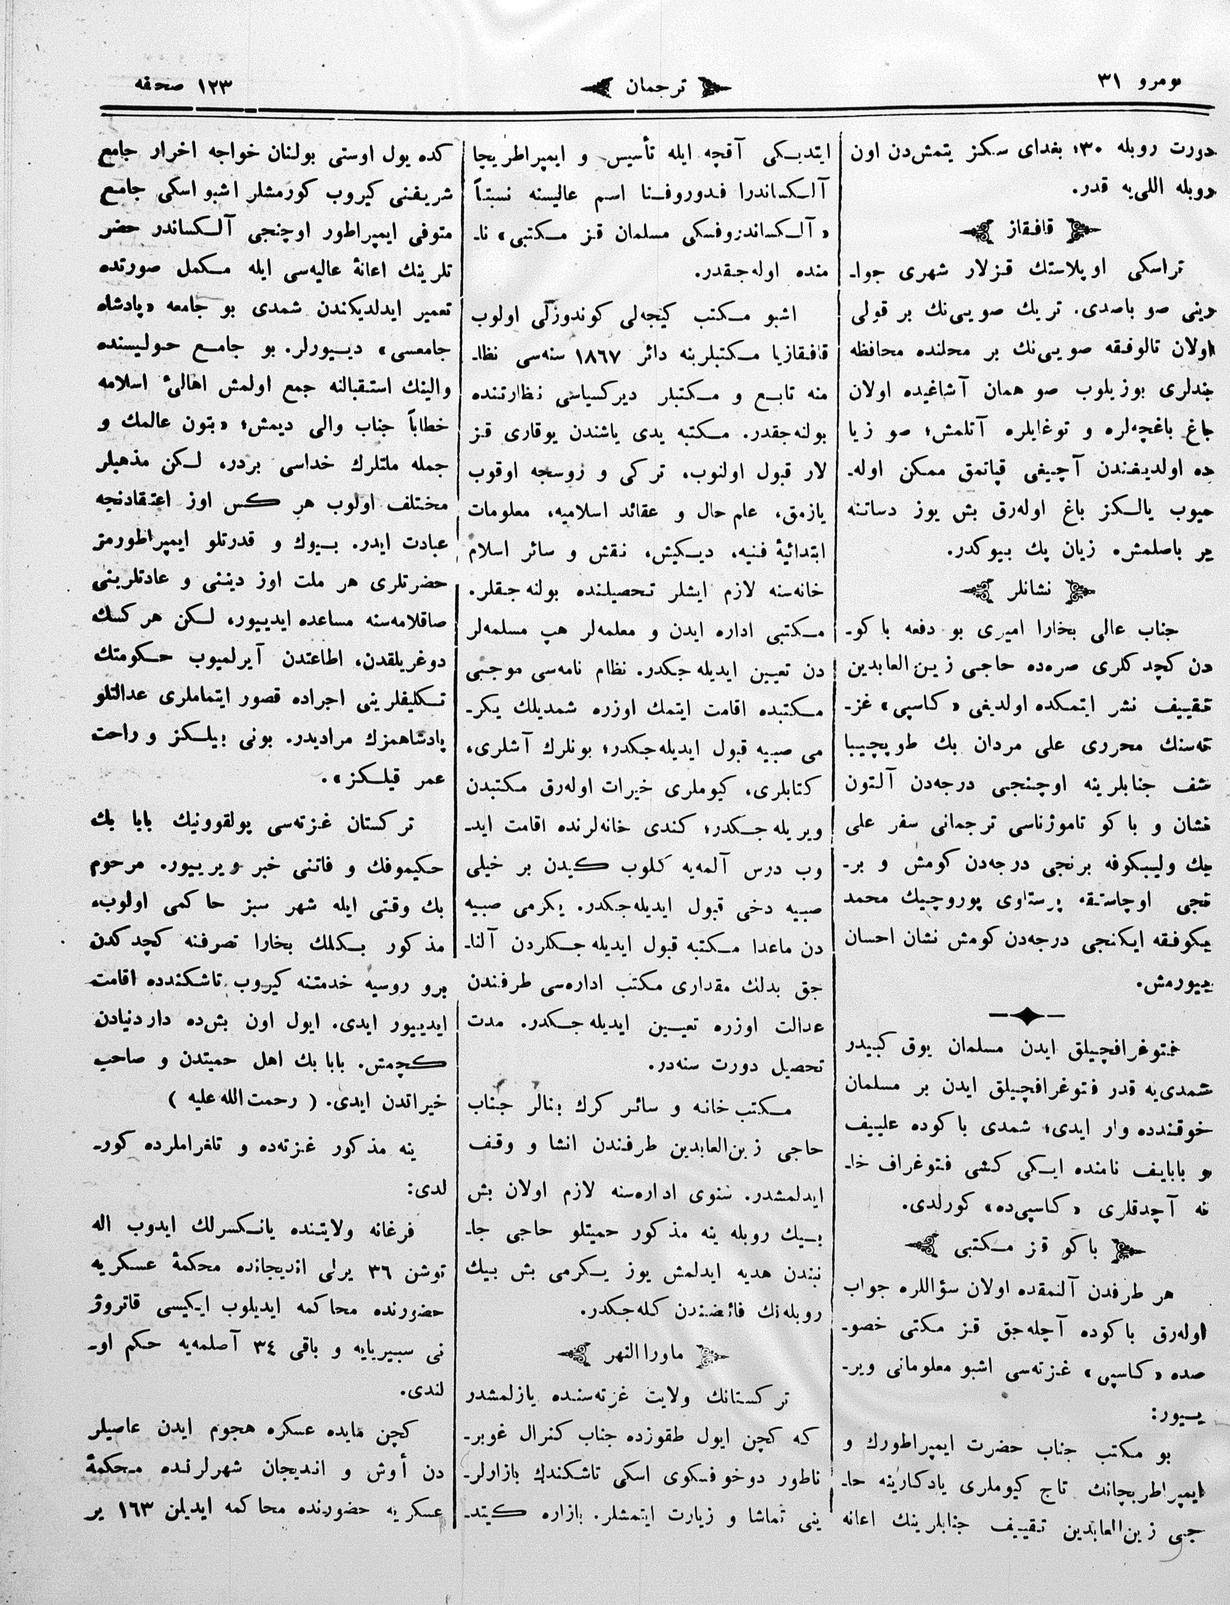 نومرو ٣١
ترجمان
١٢٣ صحفه
دورت روبله ٣٠؛ بغدای سکز یتمش‌دن اون
روبله اللی‌یه قدر.
قافقاز
تراسکی اوبلاستك قزلار شهری جوا-
رینی صو باصدی. تریك صویی‌نك بر قولی
اولان تالوفقه صویی‌نك بر محلنده محافظه
بندلری بوزیلوب صو همان آشاغیده اولان
باغ باغچه‌لره و توغایلره آتلمش؛ صو زیا
ده اولدیغندن آچیغی قپاتمق ممکن اوله-
میوب یالـکز باغ اوله‌رق بش یوز دساتنه
یر باصلمش. زیان پك بیوکدر.
نشانلر
جناب عالی بخارا امیری بو دفعه باکو-
دن کچدکلری صره‌ده حاجی زین‌العابدین
تقییف نشر ایتمکده اولدیغی «کاسپی» غز-
ته‌سنك محرری علی مردان بك طوپچیبا
شف جنابلرینه اوچنجی درجه‌دن آلتون
نشان و باکو تاموژناسی ترجمانی سفر علی
بك ولیبیکوفه برنجی درجه‌دن کومش و بر-
نجی اوچاستقه پرستاوی پوروچیك محمد
بیکوفقه ایکنجی درجه‌دن کومش نشان احسان
بیورمش.
فتوغرافچیلق ایدن مسلمان یوق کبیدر
شمدی‌یه قدر فتوغرافچیلق ایدن بر مسلمان
خوقندده وار ایدی؛ شمدی باکوده علییف
و بابایف نامنده ایـکی کشی فتوغراف خا-
نه آچدقلری «کاسپی‌ده» کورلدی.
باکو قز مـکتبی
هر طرفدن آلنمقده اولان سؤاللره جواب
اوله‌رق باکوده آچله‌جق قز مکتبی خصو-
صده «کاسپی» غزته‌سی اشبو معلوماتی ویر-
یـیور:
بو مکتب جناب حضرت ایمپراطورك و
ایمپراطریچانك تاج کیوملری یادکارینه حا-
جی زین‌العابدین تـقییف جنابلرینك اعانه
ایتدیـکی آقچه ایله تأسیس و ایمپراطریچا
آلـکساندرا فـدوروفـنا اسم عالیسنه نسبتاً
«آلـکساندروفسکی مسلمان قـز مـکتبی» نا-
منده اوله‌جـقدر.
اشبو مـکتب کیجه‌لی کوندوزلی اولوب
قافـقازیا مـکتبلرینه دائر ١٨٦٧ سنه‌سی نظا-
منه تابـع و مـکتبلر دیرکسیاسی نظارتنده
بولنه‌جقدر. مـکتبه یدی یاشندن یوقاری قـز
لار قبول اولنوب، ترکی و روسجه اوقوب
یازمق، علم حال و عقائد اسلامیه، معلومات
ابتدائیهٔ فنیه، دیـکیش، نقش و سائر اسلام
خانه‌سنه لازم ایشلر تحصیلنده بولنه‌جـقلر.
مـکتبی اداره ایدن و معلمه‌لر هپ مسلمه‌لر
دن تعیین ایدیله‌جکدر. نظام نامه‌سی موجبی
مـکتبده اقامت ایتمك اوزره شمدیلك یکر-
می صبیه قبول ایدیله‌جکدر؛ بونلرك آشلری،
کتابلری، کیوملری خیرات اوله‌رق مکتبدن
ویریله‌جـکدر؛ کندی خانه‌لرنده اقامت اید-
وب درس آلمه‌یه کلوب کیدن بر خیلی
صبیه دخی قبول ایدیله‌جکدر. یکرمی صبیه
دن ماعدا مـکتبه قبول ایدیله‌جـکلردن آلنا-
جق بدلك مقداری مکتب اداره‌سی طرفندن
عدالت اوزره تعیـین ایدیله‌جـکدر. مدت
تحصیل دورت سنه‌در.
مـکتب خانه و سائـر کرك بنالر جناب
حاجی زین‌العابدین طرفندن انشا و وقف
ایدلمشدر. سنوی اداره‌سنه لازم اولان بش
بـیك روبله ینه مذکور حمیتلو حاجی جا-
نبندن هدیه ایدلمش یوز یـکرمی بش بیك
روبله‌نك فائضندن کله‌جکدر.
ماوراالنهر
ترکستانك ولایت غزته‌سنده یازلمشدر
که کچن ایول طقوزده جناب کنرال غوبر-
ناطور دوخوفسکوی اسکی تاشکندك بازارلر-
ینی تماشا و زیارت ایتمشلر. بازاره کیتد-
کده یول اوستی بولنان خواجه احرار جامع
شریفنی کیروب کورمشلر اشبو اسکی جامع
متوفی ایمپراطور اوچنجی آلـکساندر حضر
تلرینك اعانهٔ عالیه‌سی ایله مـکمل صورتده
تعمیر ایدلدیکندن شمدی بو جامعه «پادشاه
جامعسی» دیـیورلر. بو جامـع حـولیسنده
والینك استقبالنه جمع اولمش اهالئ اسلامه
خطاباً جناب والی دیمش؛ «بتون عالمك و
جمله ملتلرك خداسی بردر، لـکن مذهبلر
مختلف اولوب هر کـس اوز اعتقادنجه
عبادت ایدر. بـیوك و قدرتلو ایمپراطورمز
حضرتلری هر ملت اوز دیننی و عادتلرینی
صاقلامه‌سنه مساعده ایدیـیور، لـکن هرکسك
دوغریلقدن، اطاعتدن آیرلمیوب حـکومتك
تـکلیفلرینی اجراده قصور ایتماملری عدالتلو
پادشاهمزك مرادیدر. بونی بیلـکز و راحت
عمر قیلـکز».
ترکستان غزته‌سی پولقوونیك بابا بك
حکیموفك و فاتنی خبر ویریـیور. مرحوم
بك وقتی ایله شهر سبز حاکمی اولوب،
مذکور بـکلك بخارا تصرفنه کچدکدن
برو روسیه خدمتنه کیروب تاشکندده اقامت
ایدیـیور ایدی. ایول اون بش‌ده داردنیادن
کـچمش. بابا بك اهل حمیتدن و صاحب
خیراتدن ایدی. ( رحمت‌الله علیه )
ینه مذکور غـزته‌ده و تلغراملرده کور-
لدی:
فرغانه ولایتنده یانـکسرلك ایدوب اله
توشن ٣٦ یرلی اندیجانده محکمهٔ عسکریه
حضورنده محاکمه ایدیلوب ایکیسی قاتروژ
نی سیبیریایه و باقی ٣٤ آصلمه‌یه حکم او-
لندی.
کچن مایده عسکره هجوم ایدن عاصیلر
دن أوش و اندیجان شهرلرنده محکمهٔ
عسکریه حضورنده محاکمه ایدیلن ١٦٣ یر